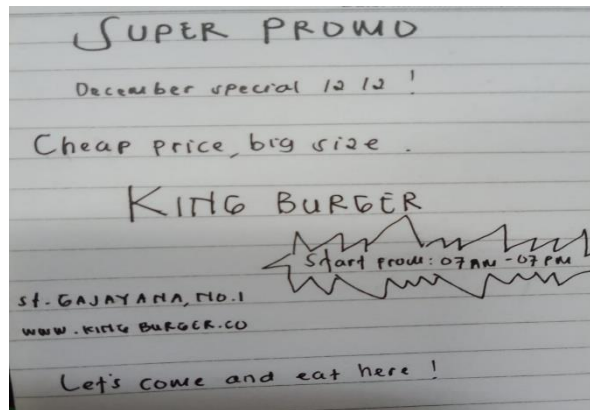 SUPER PROMO
December special 12 12 !
Cheap price, big size .
KING BURGER
Start from : 07 AM - 07 PM
st. GAJAYANA, NO.1
www.KING BURGER.CO
Let's come and eat here !